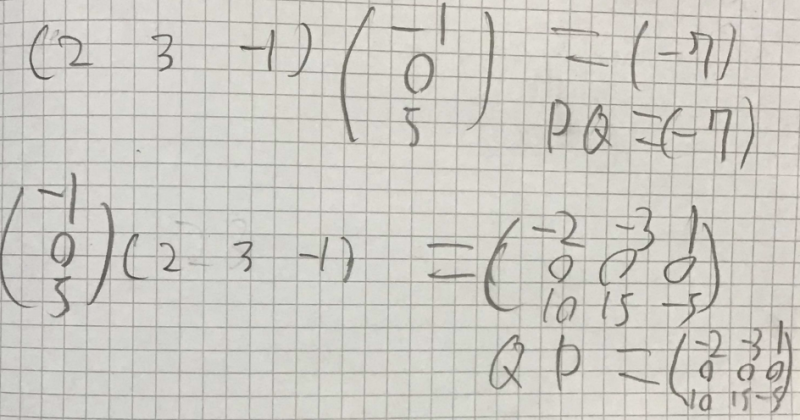 (2 3 -1) (-1 0 5) = (-7)
PQ = (-7)
(-1 0 5) (2 3 -1) = (-2 -3 1 0 0 0 10 15 -5)
QP = (-2 -3 1 0 0 0 10 15 -5)